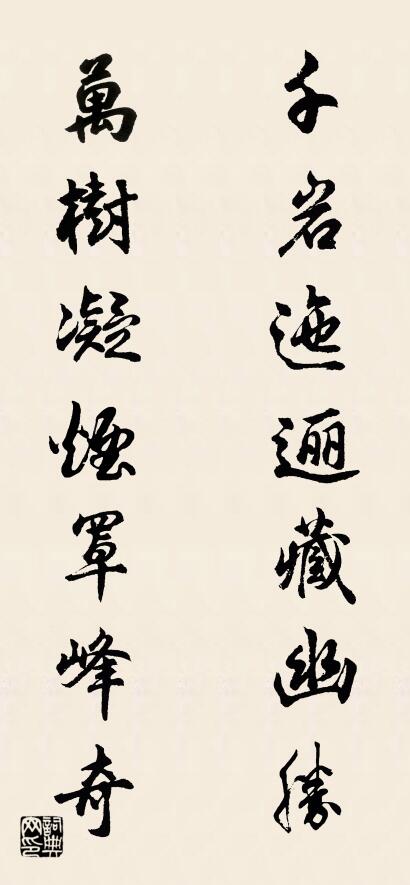 千岩迤逦藏幽勝
萬樹凝煙罩峰奇
詞典网印